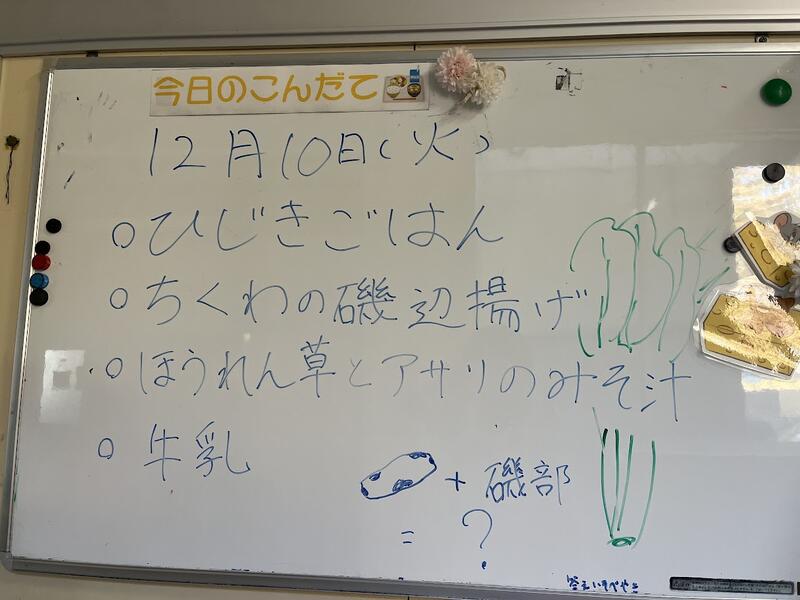 今日のこんだて
12月10日(火)
○ひじきごはん
○ちくわの磯辺揚げ
○ほうれん草とアサリのみそ汁
○牛乳
+ 磯部
= ?
答えいそべやき